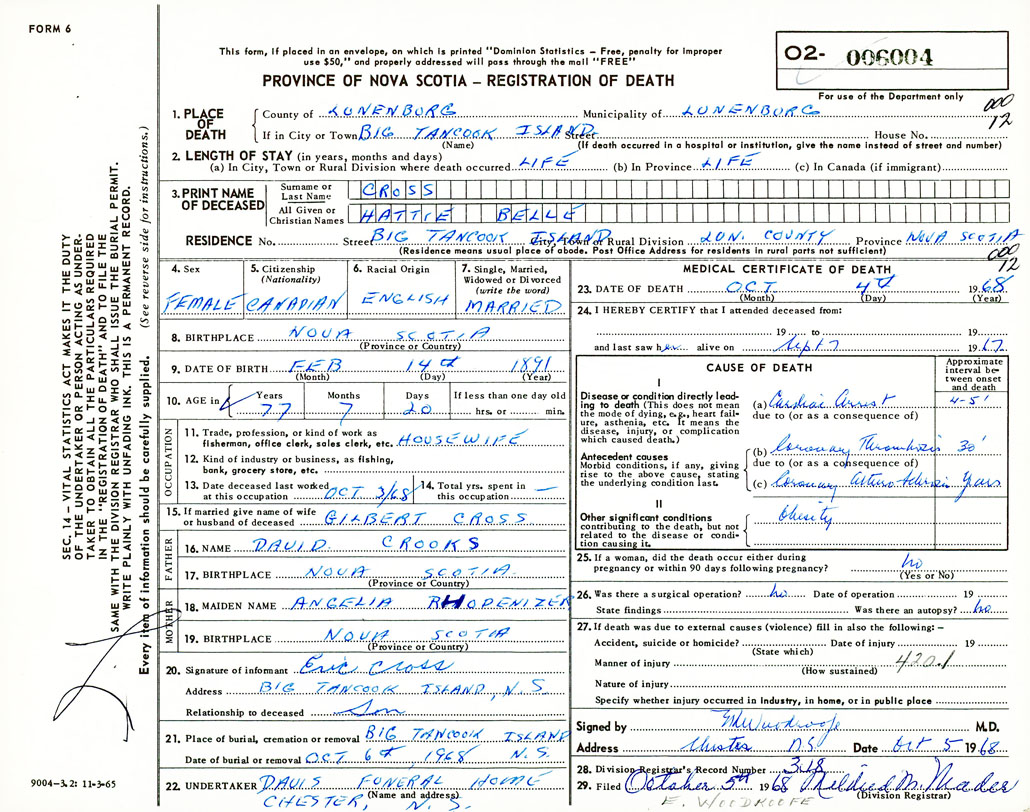 FORM 6
This form, if placed in an envelope, on which is printed "Dominion Statistics – Free, penalty for improper
use $50," and properly addressed will pass through the mail "FREE"
PROVINCE OF NOVA SCOTIA – REGISTRATION OF DEATH
02- 006004
For use of the Department only
000
12
SEC. 14 – VITAL STATISTICS ACT MAKES IT THE DUTY
OF THE UNDERTAKER OR PERSON ACTING AS UNDER-
TAKER TO OBTAIN ALL THE PARTICULARS REQUIRED
IN THE "REGISTRATION OF DEATH" AND TO FILE THE
SAME WITH THE DIVISION REGISTRAR WHO SHALL ISSUE THE BURIAL PERMIT.
WRITE PLAINLY WITH UNFADING INK. THIS IS A PERMANENT RECORD.
Every item of information should be carefully supplied. (See reverse side for instructions.)
1. PLACE OF DEATH County of LUNENBURG Municipality of LUNENBURG
If in City or Town BIG TANCOOK ISLAND Street House No.
(Name) (If death occurred in a hospital or institution, give the name instead of street and number)
2. LENGTH OF STAY (in years, months and days)
(a) In City, Town or Rural Division where death occurred LIFE (b) In Province LIFE (c) In Canada (if immigrant)
3. PRINT NAME OF DECEASED Surname or Last Name CROSS
All Given or Christian Names HATTIE BELLE
RESIDENCE No. Street BIG TANCOOK ISLAND City, Town or Rural Division LUN. COUNTY Province NOVA SCOTIA
(Residence means usual place of abode. Post Office Address for residents in rural parts not sufficient)
000
12
4. Sex FEMALE
5. Citizenship (Nationality) CANADIAN
6. Racial Origin ENGLISH
7. Single, Married, Widowed or Divorced (write the word) MARRIED
8. BIRTHPLACE NOVA SCOTIA
(Province or Country)
9. DATE OF BIRTH FEB 14th 1891
(Month) (Day) (Year)
10. AGE in Years Months Days If less than one day old
77 7 20 hrs. or min.
OCCUPATION
11. Trade, profession, or kind of work as
fisherman, office clerk, sales clerk, etc. HOUSEWIFE
12. Kind of industry or business, as fishing,
bank, grocery store, etc.
13. Date deceased last worked at this occupation OCT 3/68 14. Total yrs. spent in this occupation –
15. If married give name of wife
or husband of deceased GILBERT CROSS
FATHER
16. NAME DAVID CROOKS
17. BIRTHPLACE NOVA SCOTIA
(Province or Country)
MOTHER
18. MAIDEN NAME ANGELIA RHODENIZER
19. BIRTHPLACE NOVA SCOTIA
(Province or Country)
20. Signature of informant Eric Cross
Address BIG TANCOOK ISLAND, N.S.
Relationship to deceased Son
21. Place of burial, cremation or removal BIG TANCOOK ISLAND
Date of burial or removal OCT. 6th, 1968 N.S.
22. UNDERTAKER DAVIS FUNERAL HOME
(Name and address)
CHESTER, N.S.
MEDICAL CERTIFICATE OF DEATH
23. DATE OF DEATH OCT 4th 1968
(Month) (Day) (Year)
24. I HEREBY CERTIFY that I attended deceased from:
19 to 19
and last saw her alive on Sept 7 1967
CAUSE OF DEATH
Approximate interval between onset and death
I
Disease or condition directly leading to death (This does not mean the mode of dying, e.g., heart failure, asthenia, etc. It means the disease, injury, or complication which caused death.)
(a) Cardiac Arrest 4-5'
due to (or as a consequence of)
Antecedent causes
Morbid conditions, if any, giving rise to the above cause, stating the underlying condition last.
(b) Coronary Thrombosis 30'
due to (or as a consequence of)
(c) Coronary Years
II
Other significant conditions
contributing to the death, but not related to the disease or condition causing it.
Obesity
25. If a woman, did the death occur either during
pregnancy or within 90 days following pregnancy? no
(Yes or No)
26. Was there a surgical operation? no Date of operation 19
State findings Was there an autopsy? no
27. If death was due to external causes (violence) fill in also the following: –
Accident, suicide or homicide? Date of injury 19
(State which)
Manner of injury 420.1
(How sustained)
Nature of injury
Specify whether injury occurred in Industry, in home, or in public place
Signed by M.D.
Address Chester N.S Date Oct 5 1968
28. Division Registrar's Record Number 318
29. Filed October 5th 1968 Mildred M. Meader
(Division Registrar)
E. WOODROOFE
9004–3.2: 11-3-65